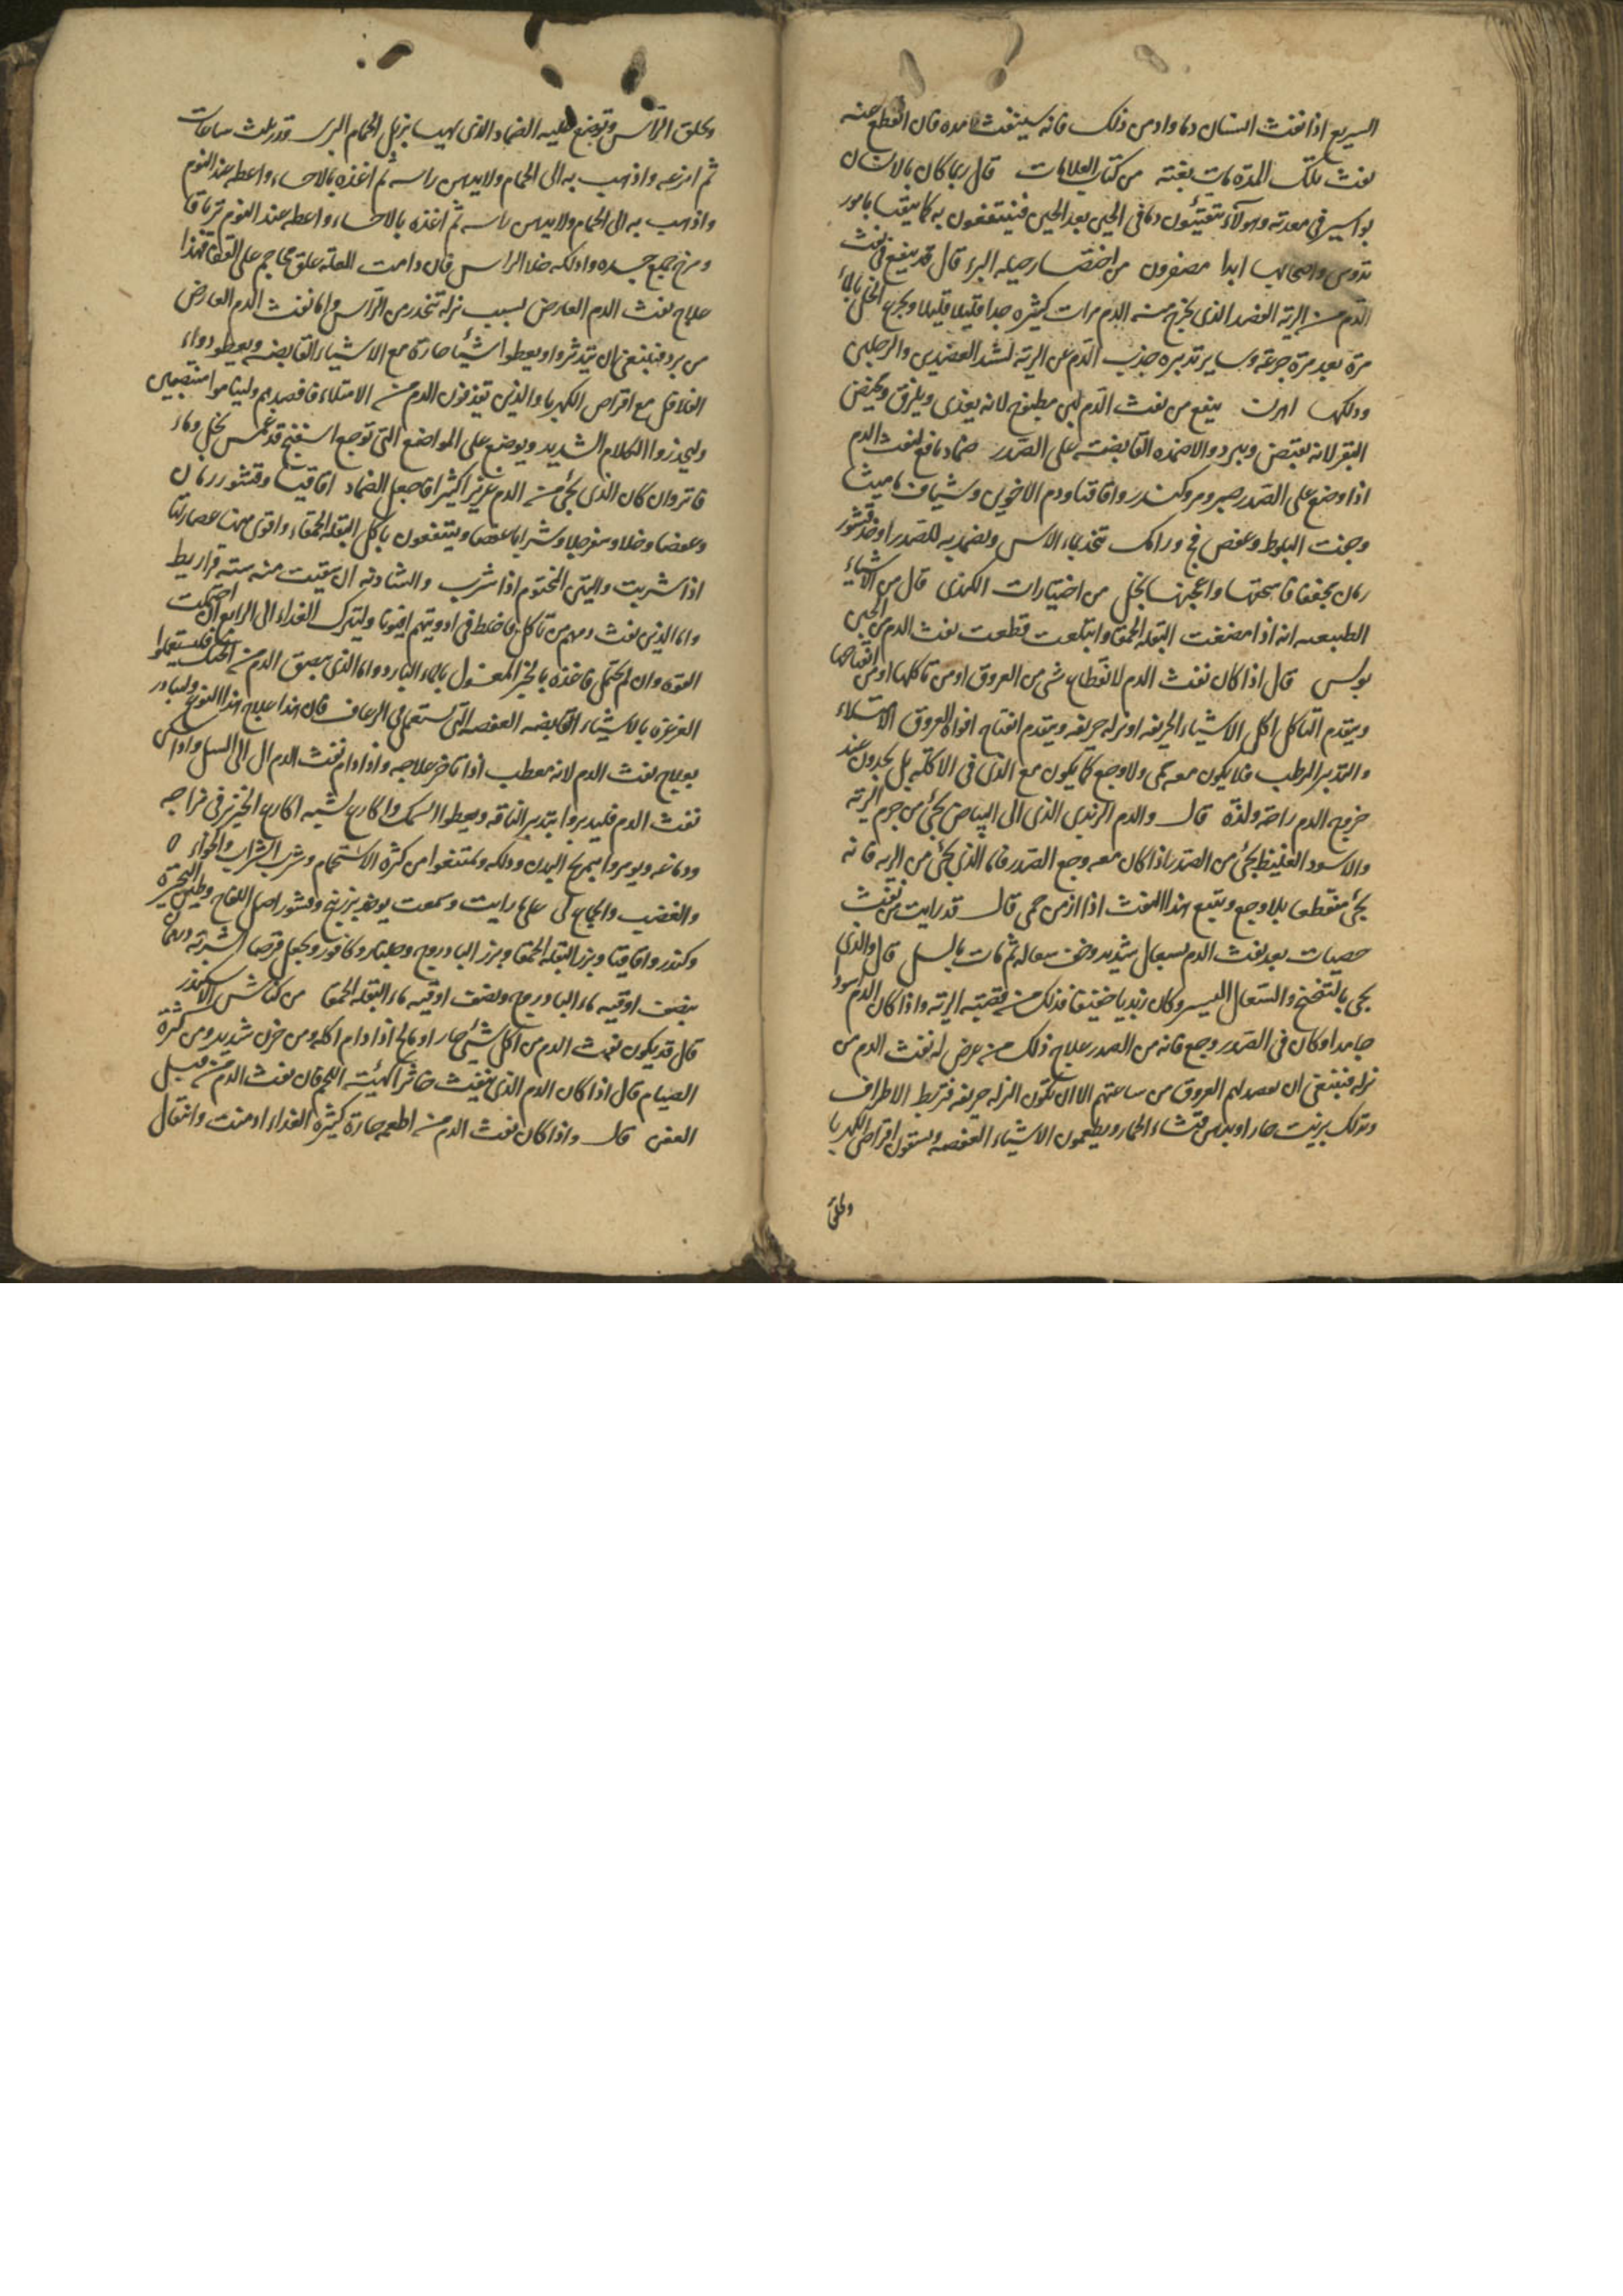 السريع اذا نفث انسان دما وادمن ذلك فانه سينفث مده فان انقطع عنه
نفث تلك المدة مات بغتة من كتاب العلامات قال ربما كان بالانسان
بواسير في معدته وهولاء يتقيئون دما في الحين بعد الحين فينتفعون به كما ينتفع بامور
واصحابها ابدا مصفرون من اختصار حيلة البرء قال قد ينفع في نفث
الدم من الرية الفصد الذي يخرج منه الدم مرات كثيره جدا قليلا قليلا ويجرع الخل بالماء
مرة بعد مرة جرعة وساير تدبيره جذب الدم عن الرية لشد العضدين والرجلين
ودلكهما اهرن ينفع من نفث الدم لبن مطبوخ لانه يغذي ويلزق وكبيض
البقر لانه يقبض ويبرد والاضمده القابضة على الصدر ضماد نافع لنفث الدم
اذا وضع على الصدر صبر ومر وكندر واقاقيا ودم الاخوين وشياف ماميثا
وجفت البلوط وعفص فج ورامك تتخذ بماء الاس ويضمد به للصدر او خذ قشور
رمان مجففا فاسحقها واعجنها بخل من اختيارات الكندي قال من الاشياء
الطبيعيه انه اذا مضغت البقله الحمقا وابتلعت قطعت نفث الدم من الحين
بولس قال اذا كان نفث الدم لانقطاع شي من العروق او من تاكلها او من انفتاحها
ويتقدم التاكل اكل الاشياء الحريفه او نزله حريفه ويتقدم انفتاح افواه العروق الامتلاء
والتدبير المرطب فلا يكون معه حمى ولا وجع كما يكون مع الذي في الاكله بل يجدون عند
خروج الدم راحة ولذة قال والدم الزبدي الذي الى البياض يجئ من جرم الرئه
والاسود الغليظ يجئ من الصدر اذا كان معه وجع الصدر فاما الذي يجئ من الريه فانه
يجئ منقطعا بلا وجع ويتبع هذا النفث اذا ازمن حمى قال قد رايت من نفث
حصيات بعد نفث الدم بسعال شديد وخف سعاله ثم مات بالسل قال والذي
يجي بالتنخنح والسعال اليسير وكان زبديا خفيفا فذلك من قصبة الرئة واذا كان الدم اسود
جامدا وكان في الصدر وجع فانه من الصدر علاج ذلك من عرض له نفث الدم من
نزله فينبغي ان يفصد لهم العروق من ساعتهم الا ان تكون النزله حريفه فتربط الاطراف
وتدلك بزيت حار او بدهن قثاء الحمار ويطعمون الاشياء العفصه ويسقون اقراص الكهربا
وتحلق
وتحلق الراس وتوضع عليه الضماد الذي يهيا بزبل الحمام البرى قدر ثلث ساعات
ثم انزعه واذهب به الى الحمام ولا يدهن راسه ثم اغذه بالاحساء واعطه عند النوم
واذهب به الى الحمام ولا يدهن راسه ثم اغذه بالاحساء واعطه عند النوم ترياقا
ومرخ جميع جسده وادلكه خلا الراس فان دامت العلة علق محاجم على القفا فهذا
علاج نفث الدم العارض بسبب نزلة تنحدر من الراس واما نفث الدم العارض
من برد فينبغي ان يتدثروا ويعطوا اشياء حارة مع الاشياء القابضه ويعطو دواء
الفلافل مع اقراص الكهربا والذين يقذفون الدم من الامتلاء فافصدهم ولينامو منتصبين
وليحذروا الكلام الشديد ويوضع على المواضع التى توجع اسفنج قد غمس بخل وماء
فاتر وان كان الذي يجئ من الدم غزيرا كثيرا فاجعل الضماد اقاقيا وقشور رمان
وعفصا وخلا وسفرجلا وشرابا عفصا وينتفعون باكل البقلة الحمقاء واقوى منها عصارتها
اذا شربت والطين المختوم اذا شرب والشادنه ان سقيت منه ستة قراريط
واما الذين نفث دمهم من تاكل فاخلط في ادويتهم افيونا وليترك الغذاء الى الرابع ان احتملت
القوه وان لم يحتمل فاغذه بالخبز المغسول بالماء البارد واما الذي يبصق الدم من الحنك فليستعملوا
الغرغرة بالاشياء القابضه العفصه التي تستعمل في الرعاف فان هذا علاج هذا النوع وليبادر
بعلاج نفث الدم لانه معطب اذا تاخر علاجه واذا دام نفث الدم ال الى السل واذا سكن
نفث الدم فليدبروا بتدبير الناقه ويعطوا السمك واكارع لشيه اكارع الخنزير في مزاجه
ودماغه ويومروا بمرخ البدن ودلكه ويمتنعوا من كثرة الاستحمام وشرب الشراب والحواء
والغضب والجماع لي على ما رايت وسمعت يوخذ بزربنج وقشور اصل اللفاح وطين البحيره
وكندر واقاقيا وبزر البقله الحمقا وبزر الباذروج وجلنار وكافور ويجعل قرصا الشربة درهما
بنصف اوقيه ماء الباذروج ونصف اوقيه ماء البقله الحمقا من كناش الاسكندر
قال قد يكون نفث الدم من اكل شئ حار او مالح اذا دام اكله ومن حزن شديد ومن كثرة
الصيام قال اذا كان الدم الذي ينفث خاثرا كهيئة اللحم فان نفث الدم من قبل
العفن قال واذا كان نفث الدم من اطعمه حارة كثيرة الغذاء ادمنت وانتقال